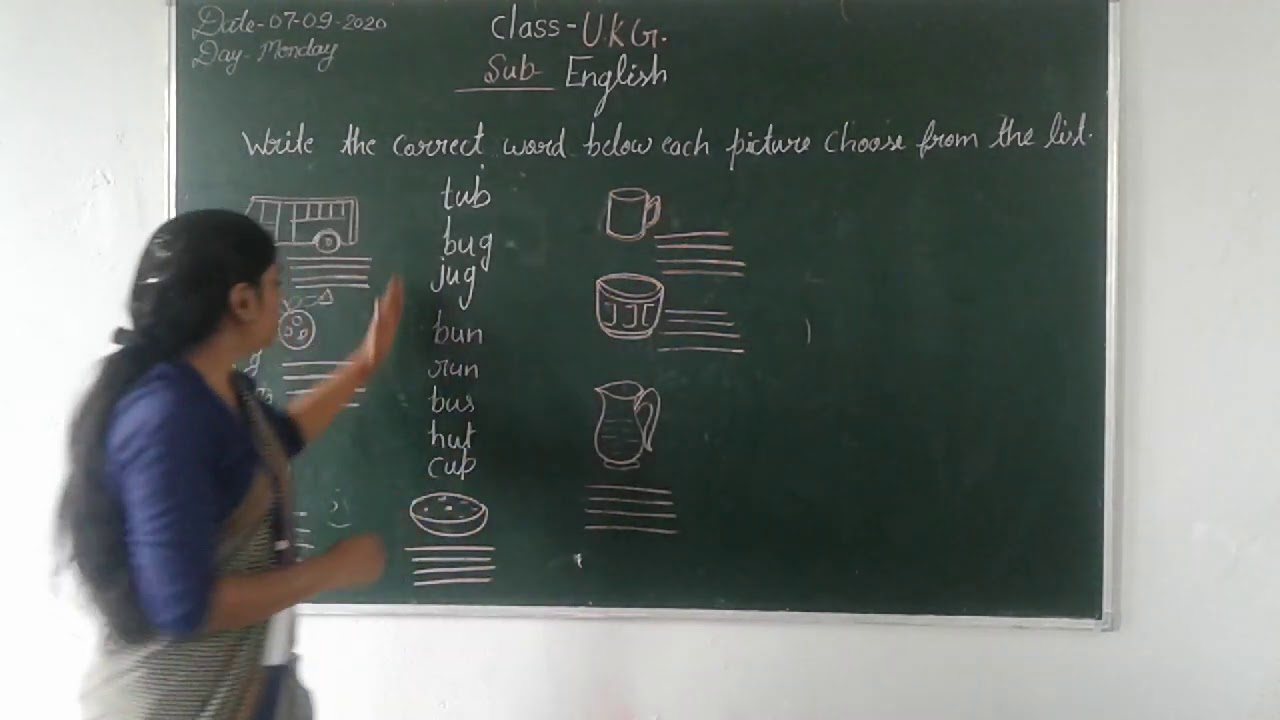 Date-07-09-2020
Day-Monday
Class-U.K.G.
Sub- English
Write the correct word below each picture choose from the list.
tub
bug
jug
bun
run
bus
hut
cup